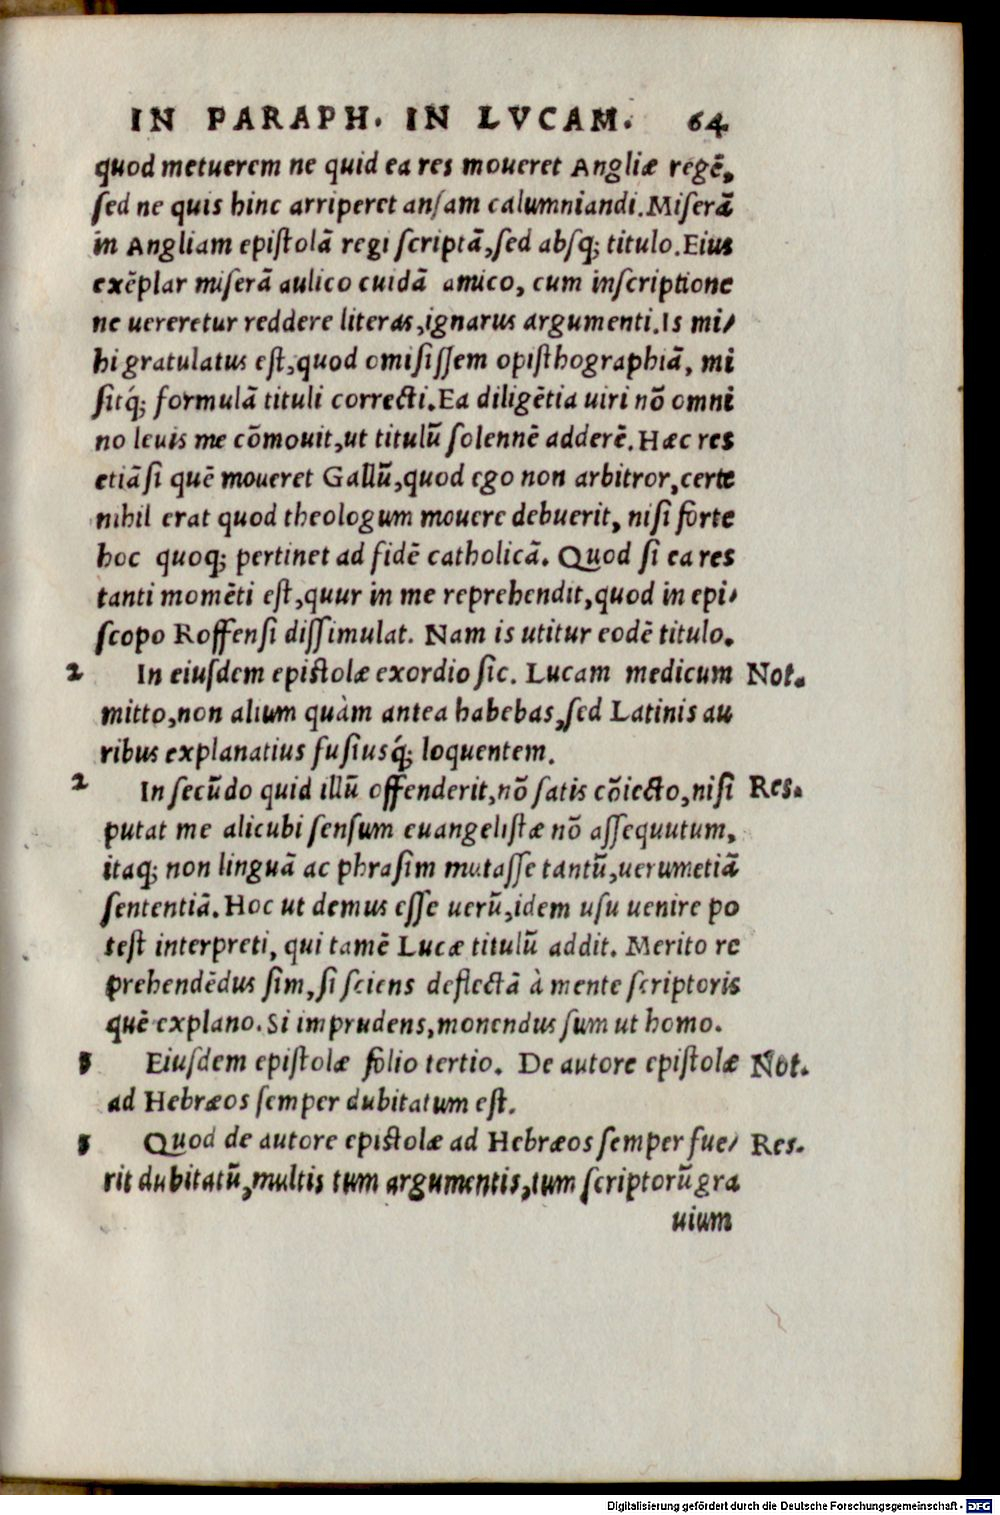 IN PARAPH. IN LVCAM. 64
quod metuerem ne quid ea res moueret Angliæ regē,
ſed ne quis hinc arriperet anſam calumniandi. Miſerā
in Angliam epiſtolā regi ſcriptā, ſed abſq; titulo. Eius
exēplar miſerā aulico cuidā amico, cum inſcriptione
ne uereretur reddere literas, ignarus argumenti. Is mi/
hi gratulatus eſt, quod omiſiſſem opiſthographiā, mi
ſitq́; formulā tituli correcti. Ea diligētia uiri nō omni
no leuis me cōmouit, ut titulū ſolennē adderē. Hæc res
etiāſi quē moueret Gallū, quod ego non arbitror, certe
nihil erat quod theologum mouere debuerit, niſi forte
hoc quoq; pertinet ad fidē catholicā. Quod ſi ea res
tanti momēti eſt, quur in me reprehendit, quod in epi/
ſcopo Roffenſi diſſimulat. Nam is utitur eodē titulo.
2 In eiuſdem epiſtolæ exordio ſic. Lucam medicum Not.
mitto, non alium quàm antea habebas, ſed Latinis au
ribus explanatius fuſiusq́; loquentem.
2 In ſecūdo quid illū offenderit, nō ſatis cōiecto, niſi Res.
putat me alicubi ſenſum euangeliſtæ nō aſſequutum,
itaq; non linguā ac phraſim mutaſſe tantū, uerumetiā
ſententiā. Hoc ut demus eſſe uerū, idem uſu uenire po
teſt interpreti, qui tamē Lucæ titulū addit. Merito re
prehendēdus ſim, ſi ſciens deflectā à mente ſcriptoris
quē explano. Si imprudens, monendus ſum ut homo.
3 Eiuſdem epiſtolæ folio tertio. De autore epiſtolæ Not.
ad Hebræos ſemper dubitatum eſt.
3 Quod de autore epiſtolæ ad Hebræos ſemper fue/ Res.
rit dubitatū, multis tum argumentis, tum ſcriptorū gra
uium
Digitalisierung gefördert durch die Deutsche Forschungsgemeinschaft - DFG